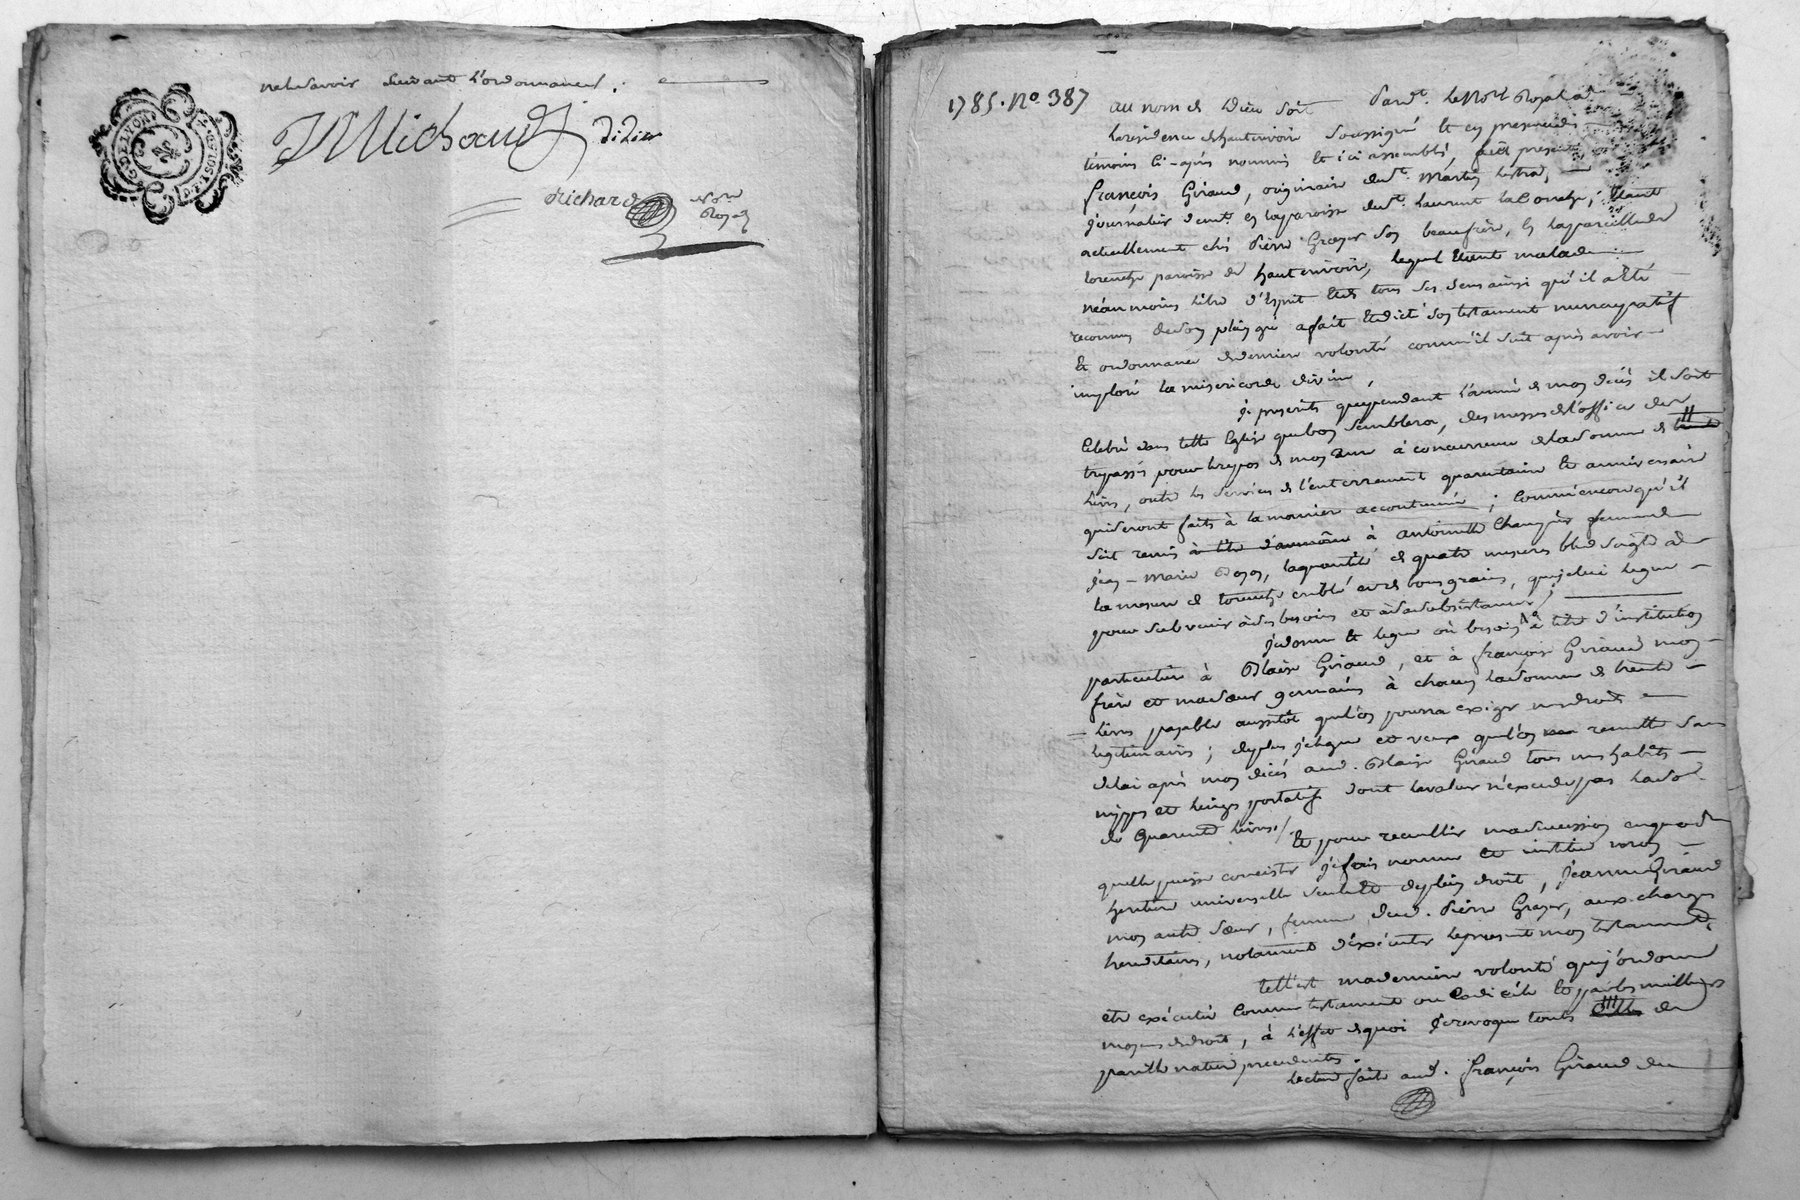 ne le savoir suivant l'ordonnance.
JM Michaud didier
Richard No.re
Royal
G. DE LYON
1785. No 387
au nom de Dieu soit pard.t le No.re Royal a
la residence de hauterivoire soussigné et en presence des
témoins ci-après nommés et ici assemblés, fut present
françois Giraud, originaire de St. Martin lestra,
journalier dem.t en la paroisse de St. Laurent
actuellement chés Pierre Grayer son beaufrère, en la parcelle de
paroisse de hauterivoire, lequel étant malade
néanmoins libre d'Esprit et de tous ses sens ainsi qu'il a été
reconnu de son plein gré a fait et dicté son testament nuncupatif
et ordonnance de dernière volonté comm'il suit après avoir
imploré la misericorde divine,
je prescris que pendant l'année de mon décès il soit
celebré dans telle Eglise que bon semblera, des messes de l'office des
trepassés pour le repos de mon ame à concurrence de la somme de
livres, outre les services de l'enterrement quarantaine et anniversaire
qui seront faits à la manier accoutumée; comm'encore qu'il
soit remis à titre d'aumône à antoinette femme de
jean-marie la quantité de quatre mesures bled seigle a
la mesure de criblé et de bons grains, que je lui legue
pour subvenir à ses besoins et à sa subsistance;
je donne et legue où besoin à titre d'institution
particulière à Blaise Giraud, et à françoise Giraud mon
frère et ma sœur germains à chacun la somme de trente
livres payable aussitôt qu'on pourra exiger mes droits
legitimaires; de plus je legue et veux qu'on remette sans
delai après mon décès aud. Blaise Giraud tous mes habits
nippes et linges portatifs dont la valeur n'excede pas la so.
de quarante livres./
Et pour recueillir ma succession en quoi
qu'elle puisse consister je fais nomme et institue pour mon
heritière universelle seule et de plein droit, jeanne Giraud
mon autre sœur, femme dud. Pierre Grayer, aux charges
hereditaires, notamment d'exécuter le present mon testament.
telle est ma dernière volonté que j'ordonne
etre exécutée comme testament ou codicile et par les meilleurs
moyens de droit, à l'effet de quoi je revoque toutes de
pareille nature precedentes.
lecture faite aud. françois Giraud du